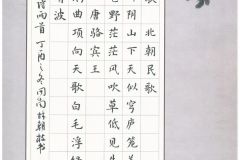 歌 北朝民歌
阴山下天似穹庐笼
野茫茫风吹草低见
唐 骆宾王
曲项向天歌白毛浮
波
诗两首 丁酉之冬